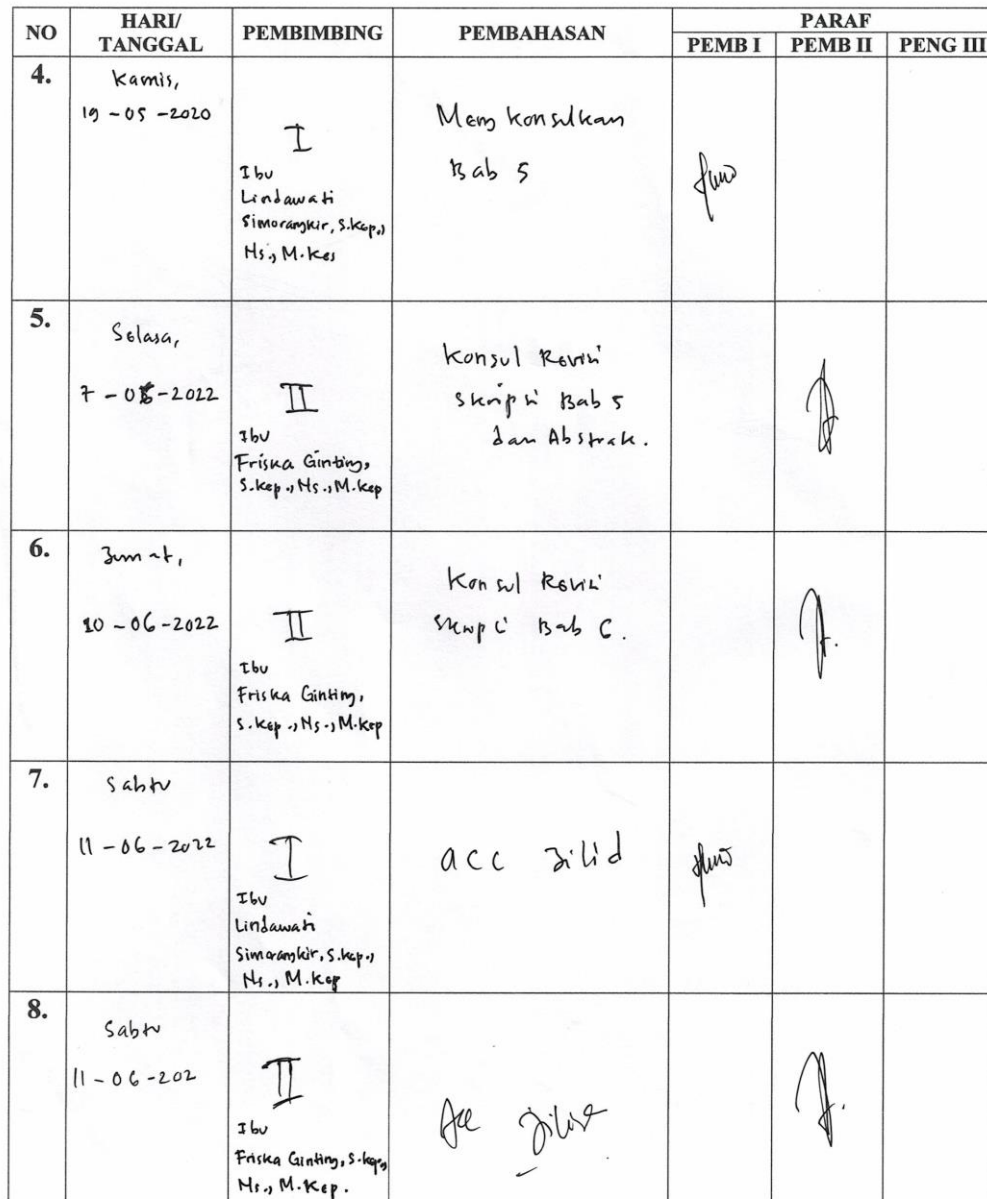 NO HARI/ TANGGAL PEMBIMBING PEMBAHASAN PARAF
PEMB I PEMB II PENG III
4.
Kamis,
19 - 05 - 2020
I
Ibu
Lindawati
Simorangkir, S.Kep.,
Ns., M.Kes
Mengkonsulkan
Bab 5
5.
Selasa,
7 - 06 - 2022
II
Ibu
Friska Ginting,
S.Kep., Ns., M.Kep
Konsul Revisi
Skripsi Bab 5
dan Abstrak.
6.
Jum'at,
10 - 06 - 2022
II
Ibu
Friska Ginting,
S.Kep., Ns., M.Kep
Konsul Revisi
Skripsi Bab 6.
7.
Sabtu
11 - 06 - 2022
I
Ibu
Lindawati
Simorangkir, S.Kep.,
Ns., M.Kep
acc Jilid
8.
Sabtu
11 - 06 - 202
II
Ibu
Friska Ginting, S.Kep.,
Ns., M.Kep.
Acc Jilid